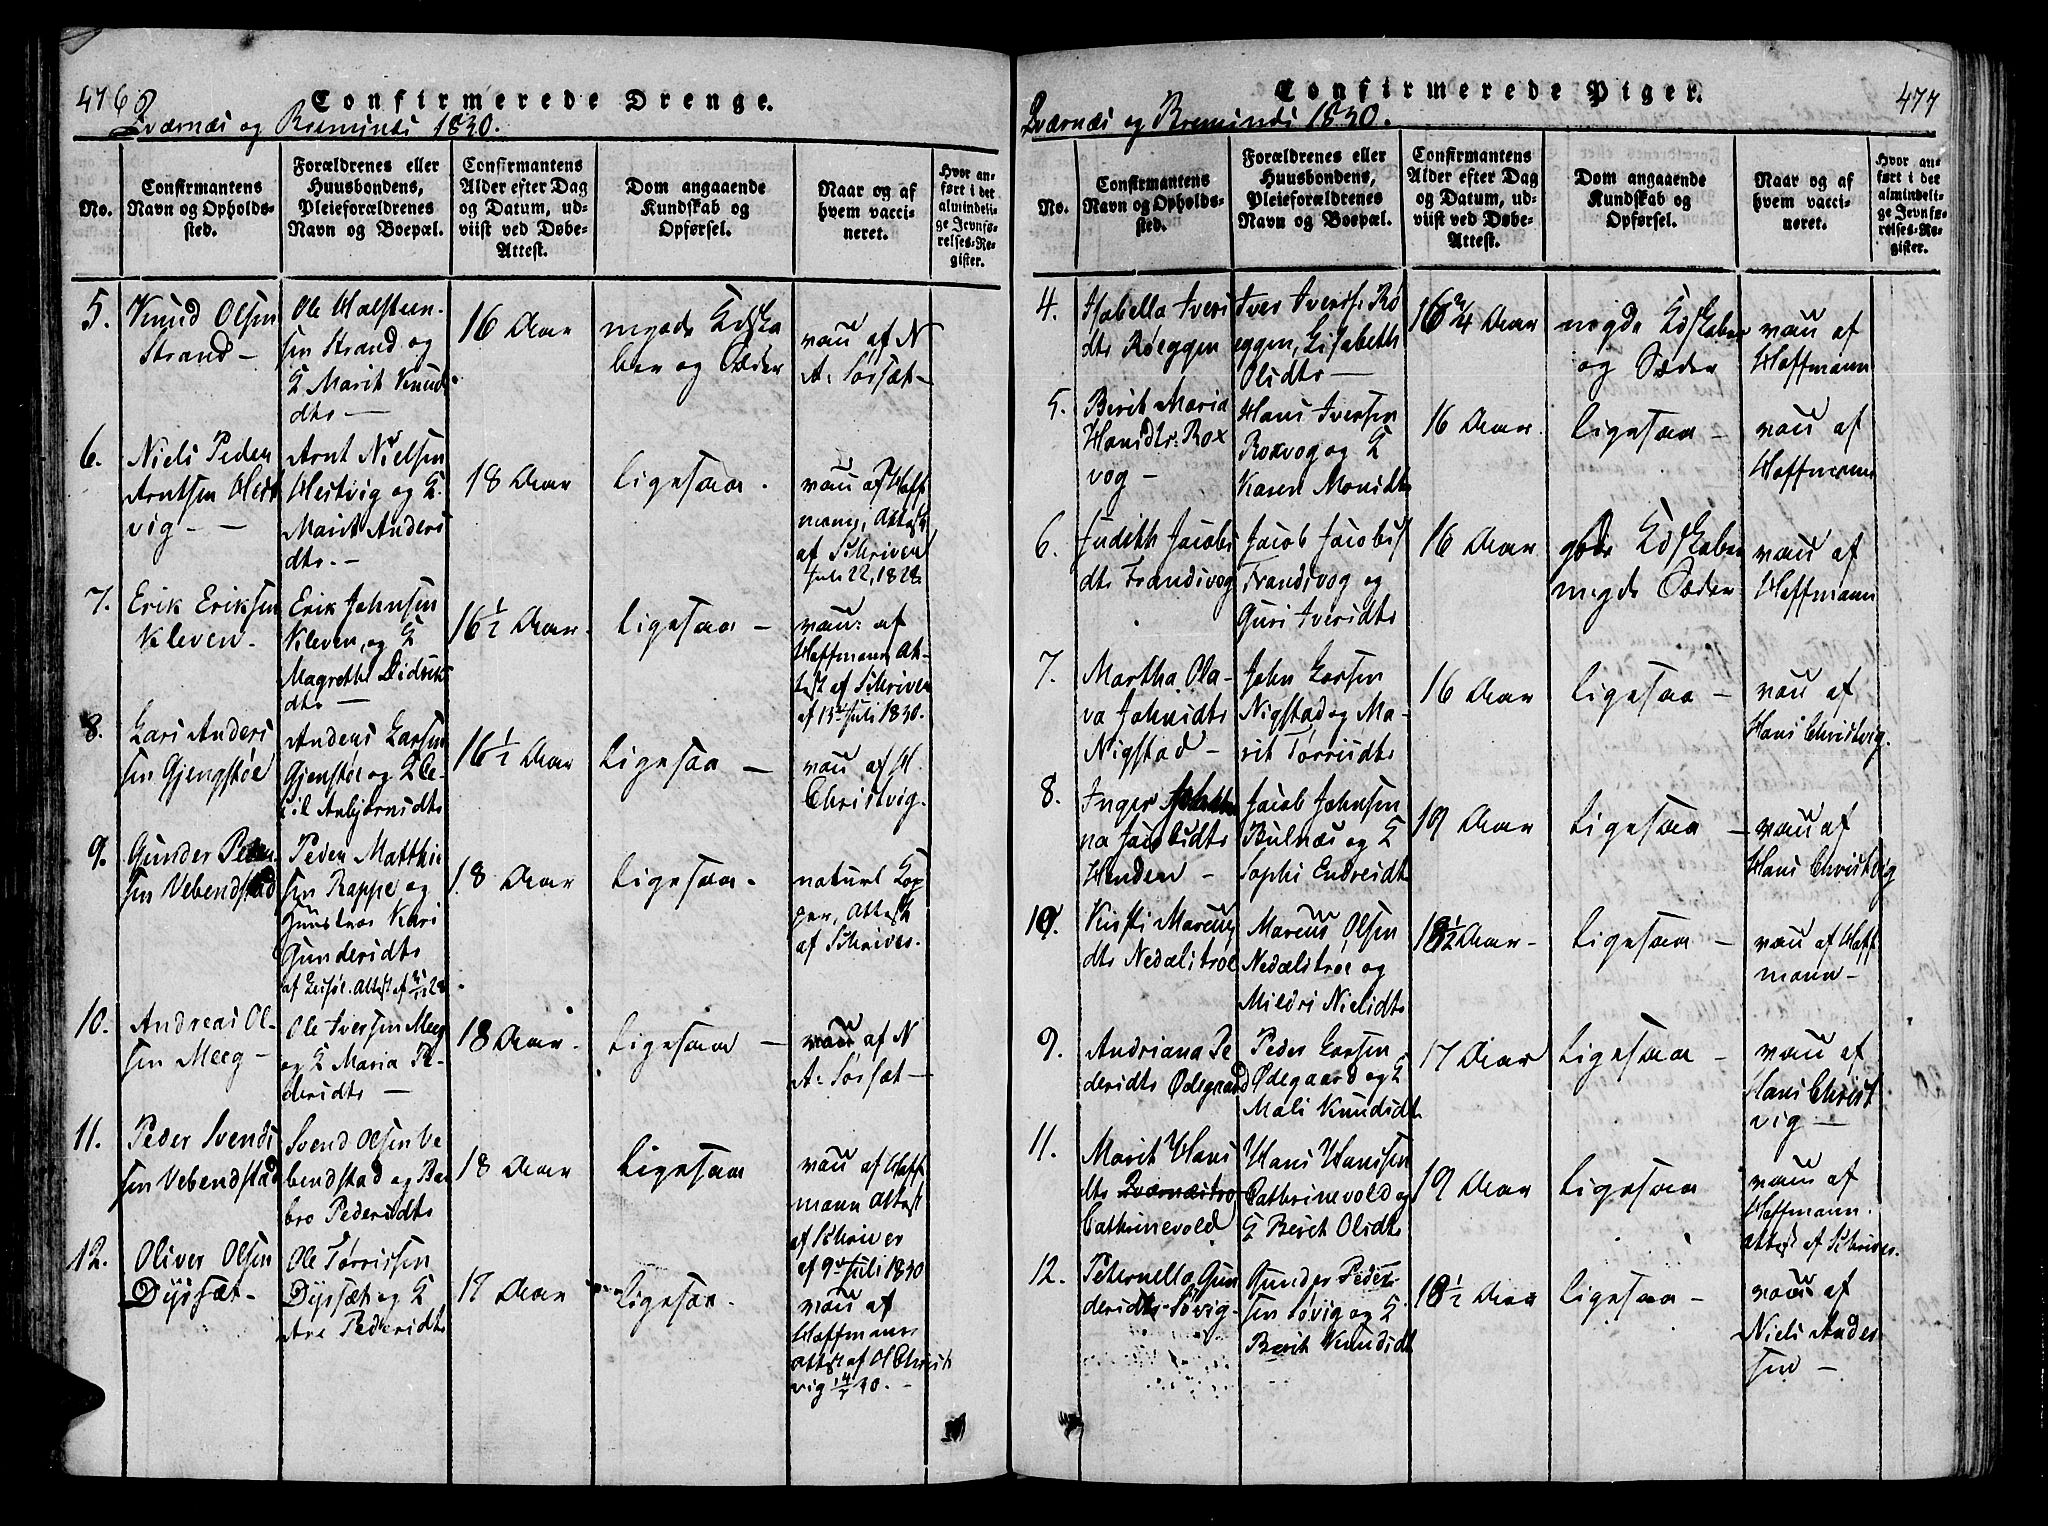 476
Confirmerede Drenge.
Qværnæs og Bremsnæs 1830.
No.
Confirmantens
Navn og Opholds-
sted.
Forældrenes eller
Huusbondens,
Pleieforældrenes
Navn og Boepæl.
Confirmantens
Alder efter Dag
og Datum, ud-
viist ved Døbe-
Attest.
Dom angaaende
Kundskab og
Opførsel.
Naar og af
hvem vacci-
neret.
Hvor an-
ført i det
almindeli-
ge Jevnfø-
relses-Re-
gister.
5.
Knud Olsen
Strand -
Ole Halsteen-
sen Strand og
K Marit Knuds
dtr -
16 Aar
megde Kdska
ber og Sæder
vau af N
A: Sørsæt -
6.
Niels Peder
Arntsen Hest
vig -
Arnt Nielsen
Hestvig og K.
Marit Anders
dtr. -
18 Aar
ligesaa .
vau af Hoff
mann, Attest
af Schriver
Juli 22, 1828
7.
Erik Eriksen
Kleven.
Erik Johnsen
Kleven, og K
Magrethe Didrik
dtr -
16½ Aar.
ligesaa -
vau: af
Hoffmann At-
test af Schriver
af 13de Juli 1830.
8.
Lars Anders
sen Gjengstøe
Anders Larsen
Gjenstøe og K Ce-
cil Anbjørnsdtr
16½ Aar
ligesaa -
vau af H
Christvig.
9.
Gunder Peder
sen Vebenstad
Peder Matthi
sen Rappe og
Huustroe Kari
Gundersdtr
18 Aar
ligesaa.
naturl Kop
per, Attest
af Schriver.
10.
Andreas Ol-
sen Meeg -
Ole Iversen Meeg
og K Maria Pe-
dersdtr -
18 Aar.
ligesaa -
vau af N
A: Sørsæt -
11.
Peder Svends
sen Vebendstad
Svend Olsen Ve
bendstad og Bar
bro Pedersdtr
18 Aar
ligesaa
vau af Hoff
mann Attest
af Schriver
af 9de Juli 1830
12.
Oliver Olsen
Dyrsæt -
Ole Tørrissen
Dyrsæt og K
Ane Pedersdtr
17 Aar
ligesaa.
vau af
Hoffmann
attest af H Christ
vig 14/7 30. -
Confirmerede Piger.
477
Qværnæs og Bremsnæs 1830.
No.
Confirmantens
Navn og Opholds-
sted.
Forældrenes eller
Huusbondens,
Pleieforældrenes
Navn og Boepæl.
Confirmantens
Alder efter Dag
og Datum, ud-
viist ved Døbe-
Attest.
Dom angaaende
Kundskab og
Opførsel.
Naar og af
hvem vacci-
neret.
Hvor an-
ført i det
almindeli-
ge Jevnfø-
relses-Re-
gister.
4.
Isabella Ivers
dtr Røeggen
Iver Iversn Rø
eggen, Lisabeth
Olsdtr -
16¾ Aar
megde Kdskaber
og Sæder
vau af
Hoffmann
5.
Berit Maria
Hansdtr: Rox
vog -
Hans Iversen
Roxvog og K
Karen Monsdtr
16 Aar.
ligesaa -
vau af
Hoffmann
6.
Judith Jacobs
dtr Frandsvog
Jacob Jacobs
Frandsvog og
Guri Iversdtr
16 Aar
gode Kdskaber
megde Sæder
vau af
Hoffmann
7.
Martha Ola-
va Johnsdtr
Nigstad -
John Larsen
Nigstad og Ma-
rit Tørrisdtr
16 Aar
ligesaa -
vau af
Hans Christvig.
8.
Inger
na Jacobsdtr
Henden -
Jacob Johnsen
Bulnæs og K
Sophi Endresdtr
19 Aar
ligesaa -
vau af
Hans Christvig
10.
Kirsti Marcus
dtr Nedælstroe
Marcus Olsen
Nedælstroe og
Mildri Nielsdtr
18½ Aar -
ligesaa -
vau af Hoff
mann -
9.
Andriana Pe
dersdtr Ødegaard
Peder Larsen
Ødegaard og K
Mali Knudsdtr
17 Aar
ligesaa -
vau af
Hans Christ
vig -
11.
Marit Hans
dtr Qværnæstro
Cathrinevold
Hans Hanssen
Cathrinevold og
K Beret Olsdtr
19 Aar
ligesaa
vau af
Hoffmann.
attest af Schriver.
12.
Peternella Gun
dersdtr Søvig -
Gunder Peder
sen Søvig og K.
Berit Knudsdtr
18½ Aar
ligesaa -
vau af
Niels Ander
sen -